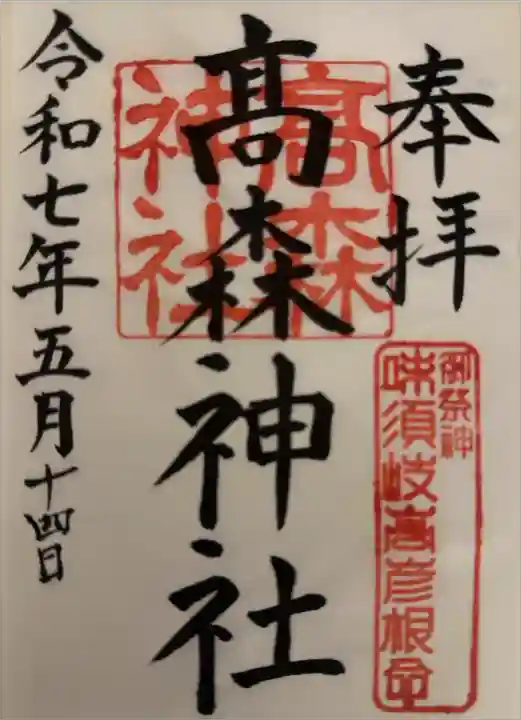 奉拝
御祭神
味須岐高彦根命
髙森神社
髙森
神社
令和七年五月十四日